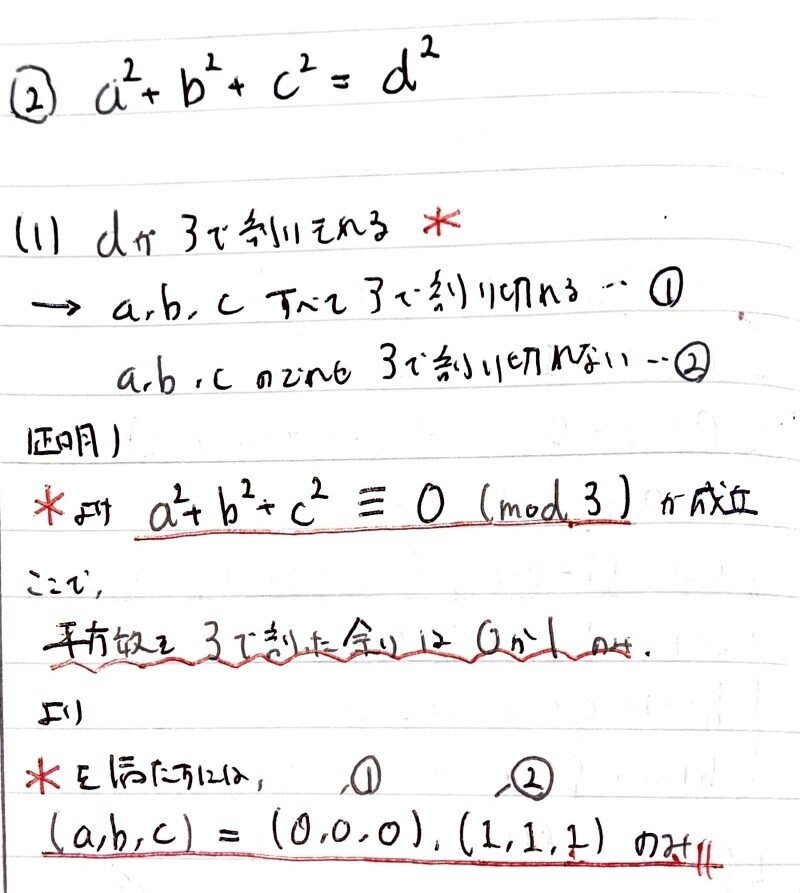 ② a²+ b²+ c² = d²
(1) dが 3で割りきれる *
→ a,b,c すべて 3で割り切れる … ①
a,b,c のどれも 3で割り切れない … ②
証明)
*より a²+ b²+ c² ≡ 0 (mod 3) が成立
ここで,
平方数を 3で割った余りは 0か1 のみ.
より
* を満たすには, ,① ,②
(a,b,c) = (0,0,0), (1,1,1) のみ//